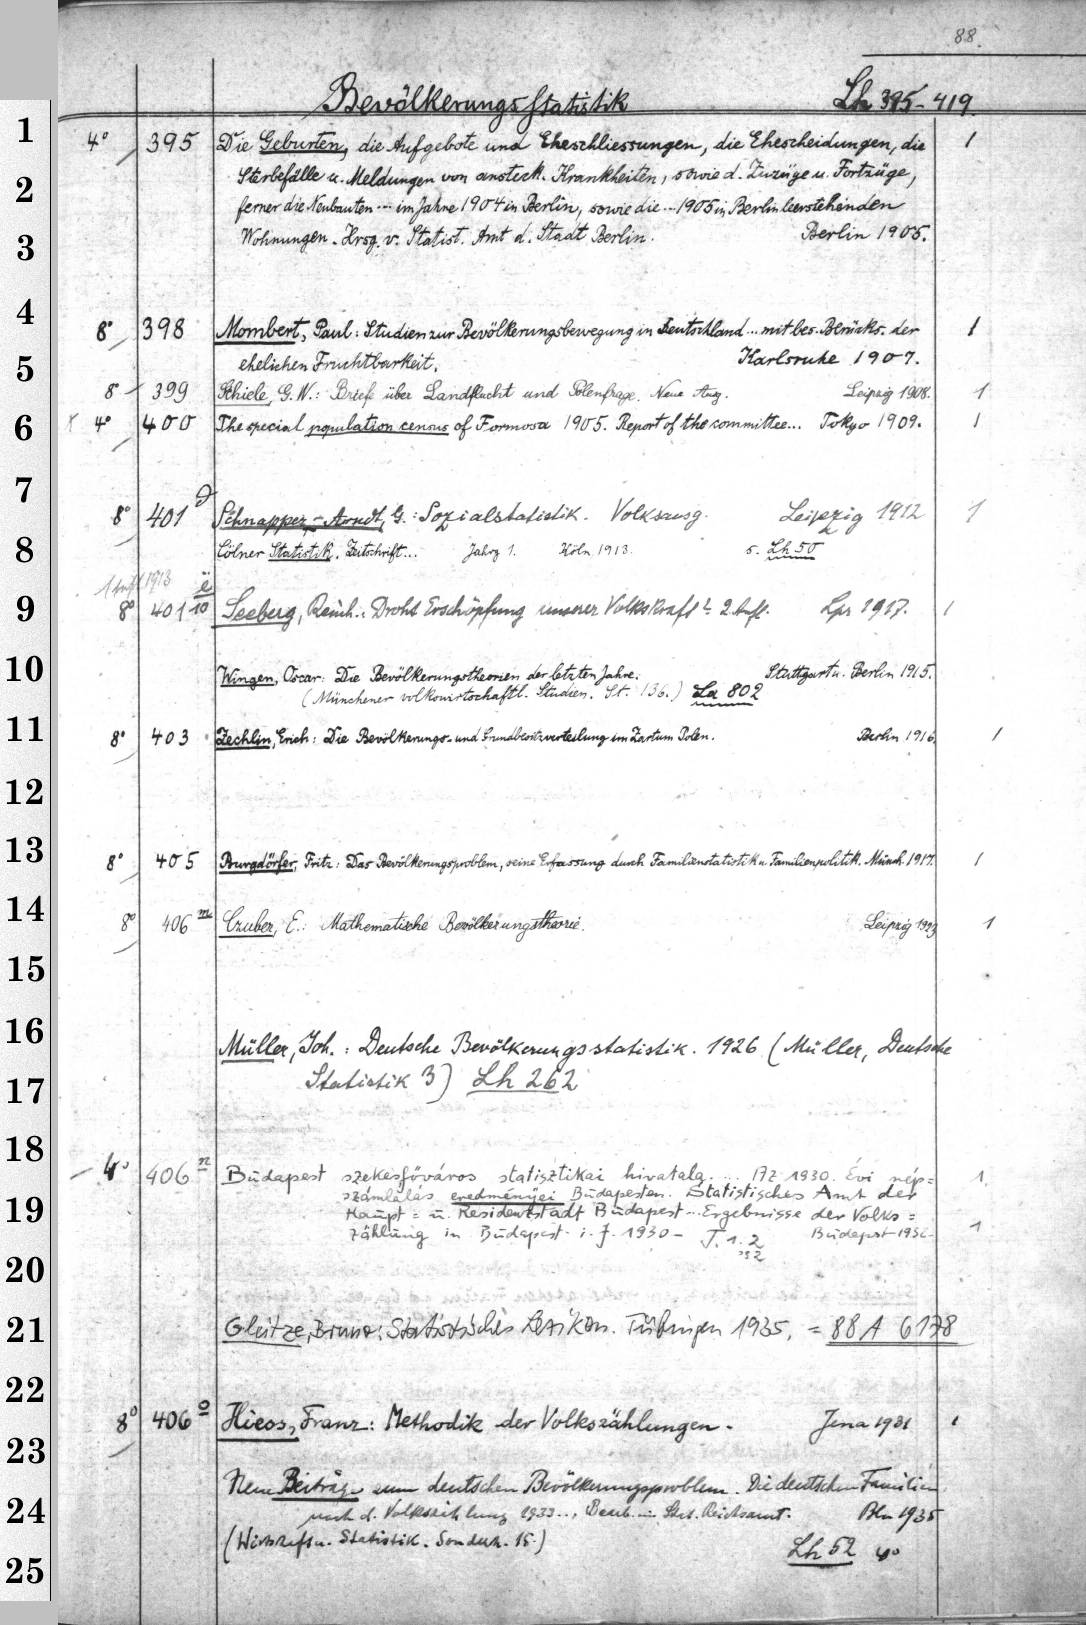 88.
Bevölkerungsstatistik Lh 395-419.
1
4° 395 Die Geburten, die Aufgebote und Eheschliessungen, die Ehescheidungen, die 1
2
Sterbefälle u. Meldungen von ansteck. Krankheiten, sowie d. Zuzüge u. Fortzüge,
ferner die Neubauten ... im Jahre 1904 in Berlin, sowie die ... 1905 in Berlin leerstehenden
3
Wohnungen. Hrsg. v. Statist. Amt d. Stadt Berlin. Berlin 1905.
4
8° 398 Mombert, Paul: Studien zur Bevölkerungsbewegung in Deutschland ... mit bes. Berücks. der 1
5
ehelichen Fruchtbarkeit. Karlsruhe 1907.
8° 399 Schiele, G. W.: Briefe über Landflucht und Polenfrage. Neue Ausg. Leipzig 1908. 1
6
4° 400 The special population census of Formosa 1905. Report of the committee... Tokyo 1909. 1
7
8° 401 d Schnapper-Arndt, G.: Sozialstatistik. Volksausg. Leipzig 1912 1
8
Cölner Statistik. Zeitschrift... Jahrg 1. Köln 1913. s. Lh 50
1913
9
8° 401 ë 10 Seeberg, Reinh.: Droht Erschöpfung unserer Volkskraft? 2. Aufl. Lpz 1917. 1
10
Wingen, Oscar: Die Bevölkerungstheorien der letzten Jahre. Stuttgart u. Berlin 1915.
(Münchener volkswirtschaftl. Studien. St. 136.) La 802
11
8° 403 Zechlin, Erich: Die Bevölkerungs- und Grundbesitzverteilung im Zartum Polen. Berlin 1916. 1
12
13
8° 405 Burgdörfer, Fritz: Das Bevölkerungsproblem, seine Erfassung durch Familienstatistik u. Familienpolitik. Münch. 1917. 1
14
8° 406 m Czuber, E.: Mathematische Bevölkerungstheorie. Leipzig 1923 1
15
16
Müller, Joh.: Deutsche Bevölkerungsstatistik. 1926 (Müller, Deutsche
17
Statistik 3) Lh 262
18
4° 406 n Budapest székesfőváros statisztikai hivatala. ... Az 1930. Évi nép= 1
19
számlálás eredményei Budapesten. Statistisches Amt der
Haupt= u. Residenzstadt Budapest ... Ergebnisse der Volks=
zählung in Budapest i. J. 1930 - T. 1. 2 Budapest 1932- 1
20
21
Gleitze, Bruno: Statistisches Lexikon. Tübingen 1935. = 88 A 6178
22
8° 406 o Hiess, Franz: Methodik der Volkszählungen. Jena 1931 1
23
Neue Beiträge zum deutschen Bevölkerungsproblem. Die deutschen Familien
24
nach d. Volkszählung 1933.., Bearb. im Stat. Reichsamt. Bln 1935
(Wirtschaft u. Statistik. Sonderh. 15.) Lh 52 4°
25